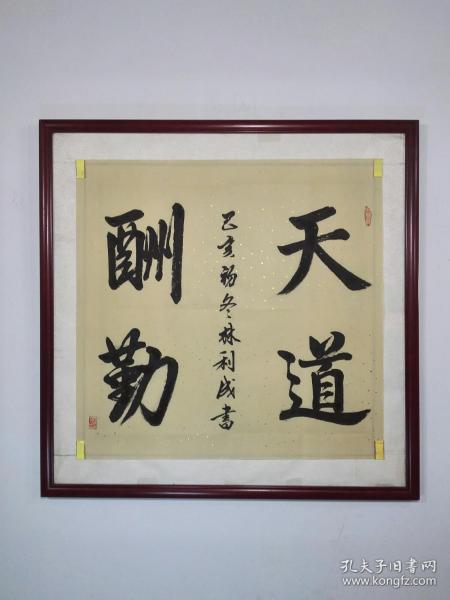 天道
酬勤
己亥初冬林利成书
孔夫子旧书网
www.kongfz.com